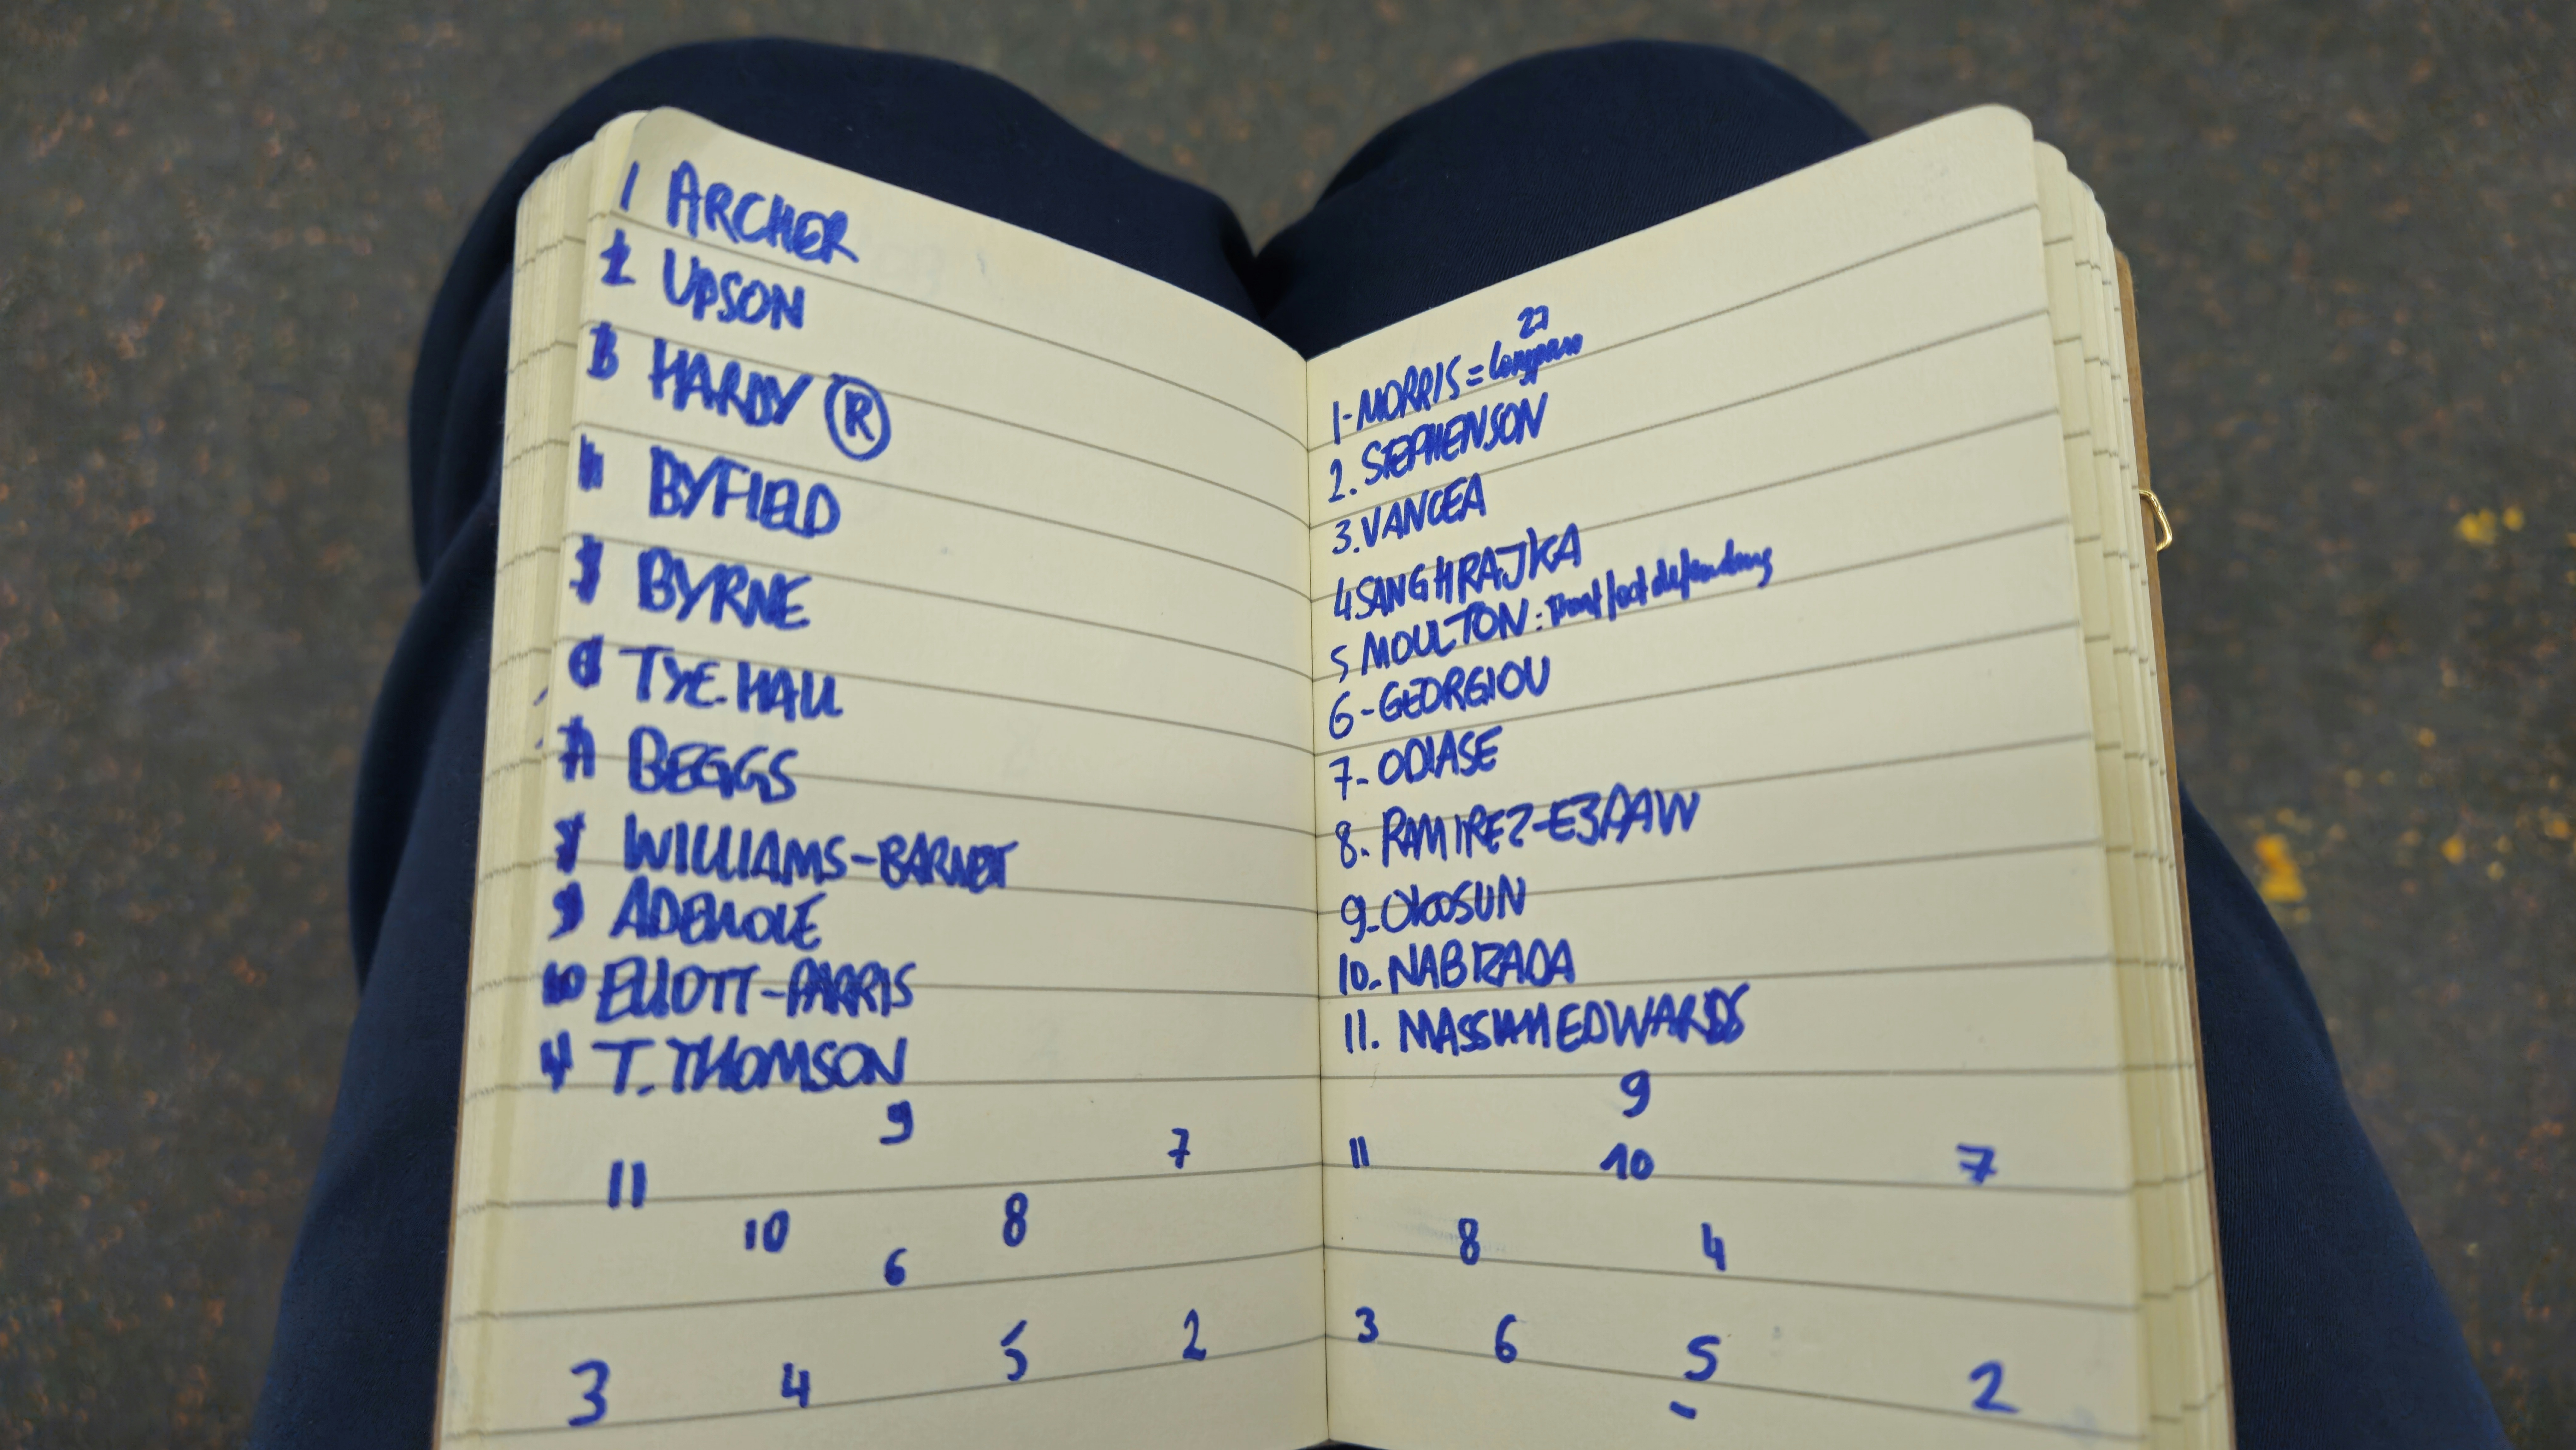 1 ARCHER
2 UPSON
3 HARDY Ⓡ
4 BYFIELD
5 BYRNE
6 TYE-HALL
7 BEGGS
8 WILLIAMS-BARNETT
9 ADEWOLE
10 ELLIOTT-PARRIS
11 T. THOMSON
9
11 7
10 8
6
3 4 5 2
27
1-MORRIS = Longpass
2. STEPHENSON
3. VANCEA
4 SANGHRAJKA
5 MOULTON: front foot defending
6-GEORGIOU
7- ODIASE
8. RAMIREZ-ESPAW
9-OKOSUN
10- NABIZADA
11. EDWARDS
9
11 10 7
8 4
3 6 5 2